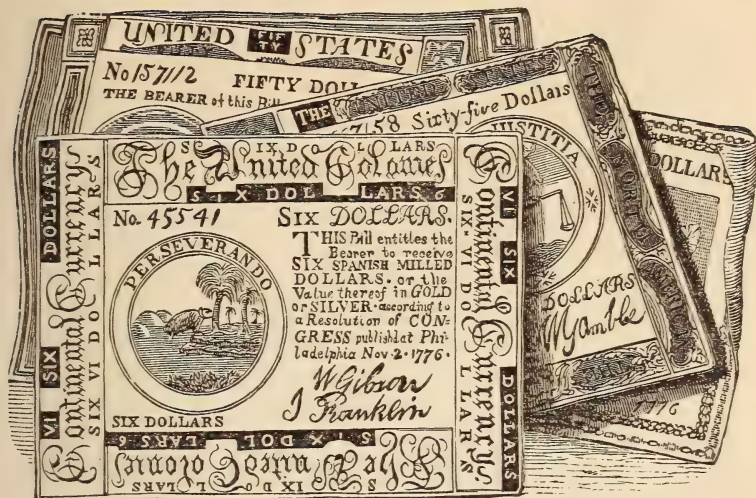 UNITED FIFTY STATES
No 157112 FIFTY
THE BEARER of this Bill
THE UNITED STATES
7158 Sixty-five Dollars
JUSTITIA
NORTH
AMERICAN
DOLLARS
W Gamble
DOLLARS
1776
SIX DOLLARS
The United Colonies
SIX DOLLARS 6
No. 45541 SIX DOLLARS.
PERSEVERANDO
THIS Bill entitles the
Bearer to receive
SIX SPANISH MILLED
DOLLARS. or the
Value thereof in GOLD
or SILVER. according to
a Resolution of CON=
GRESS publishd at Phi=
ladelphia Nov. 2. 1776.
W Gibson
J Franklin
SIX DOLLARS
VI SIX DOLLARS
Continental Currency
SIX VI DOLLARS
VI SIX DOLLARS
Continental Currency
SIX. VI DOLLARS
SIX DOLLARS 6
The United Colonies
SIX DOLLARS